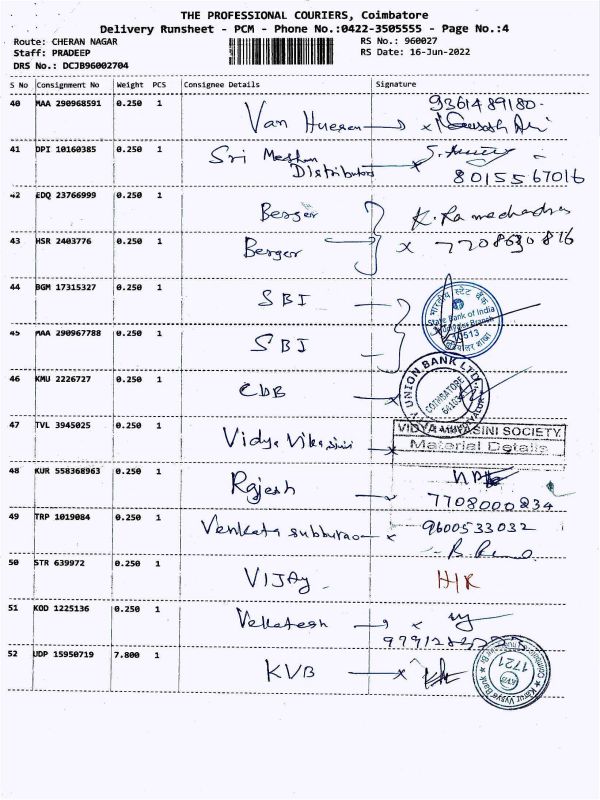 THE PROFESSIONAL COURIERS, Coimbatore
Delivery Runsheet - PCM - Phone No.:0422-3505555 - Page No.:4
Route: CHERAN NAGAR RS No.: 960027
Staff: PRADEEP RS Date: 16-Jun-2022
DRS No.: DCJB96002704
S No Consignment No Weight PCS Consignee Details Signature
9361489180
40 MAA 290968591 0.250 1 Van Huesen
41 DPI 10160385 0.250 1 Sri
Distributors 8015567016
42 EDQ 23766999 0.250 1 Berger K. Ramachandra
43 HSR 2403776 0.250 1 Berger x 7708630816
44 BGM 17315327 0.250 1 SBI
भारतीय स्टेट बैंक
State Bank of India
45 MAA 290967788 0.250 1 SBI
46 KMU 2226727 0.250 1 CUB
CITY UNION BANK LTD.
COIMBATORE
47 TVL 3945025 0.250 1 Vidya Vikasini
VIDYA VIKASINI SOCIETY
Material Details
48 KUR 558368963 0.250 1 Rajesh
7708000234
49 TRP 1019084 0.250 1 Venkata subburao x 9600533032
50 STR 639972 0.250 1 VIJAy
51 KOD 1225136 0.250 1 Vekatesh x
52 UDP 15950719 7.800 1 KVB x
Karur Vysya Bank
1721